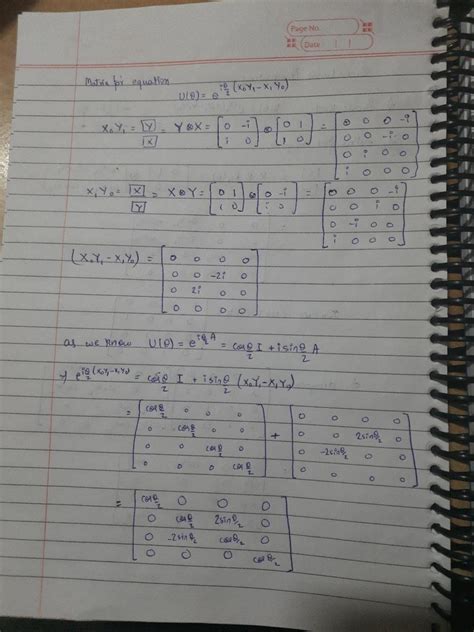 Page No.
Date | |
Matrix for equation
U(θ) = e^{iθ/2 (X₀Y₁ - X₁Y₀)}
X₀Y₁ = [Y] [X] = Y⊗X = [0 -i; i 0] ⊗ [0 1; 1 0] = [0 0 0 -i; 0 0 -i 0; 0 i 0 0; i 0 0 0]
X₁Y₀ = [X] [Y] = X⊗Y = [0 1; 1 0] ⊗ [0 -i; i 0] = [0 0 0 -i; 0 0 i 0; 0 -i 0 0; i 0 0 0]
(X₀Y₁ - X₁Y₀) = [0 0 0 0; 0 0 -2i 0; 0 2i 0 0; 0 0 0 0]
as we know U(θ) = e^{iθ/2 A} = cosθ/2 I + i sinθ/2 A
e^{iθ/2 (X₀Y₁-X₁Y₀)} = cosθ/2 I + i sinθ/2 (X₀Y₁-X₁Y₀)
= [cosθ/2 0 0 0; 0 cosθ/2 0 0; 0 0 cosθ/2 0; 0 0 0 cosθ/2] + [0 0 0 0; 0 0 2sinθ/2 0; 0 -2sinθ/2 0 0; 0 0 0 0]
= [cosθ/2 0 0 0; 0 cosθ/2 2sinθ/2 0; 0 -2sinθ/2 cosθ/2 0; 0 0 0 cosθ/2]